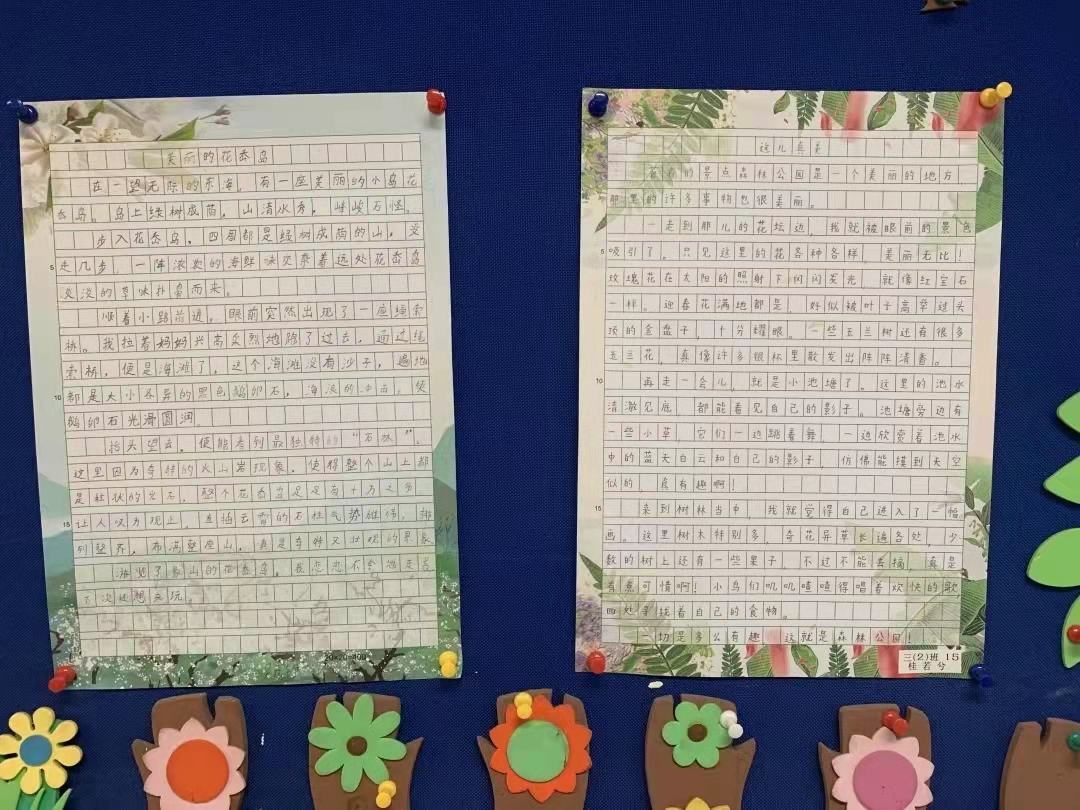 美丽的花岙岛
在一望无际的东海，有一座美丽的小岛花
岙岛。岛上绿树成荫，山清水秀，峻石怪。
步入花岙岛，四周都是绿树成荫的山，没
走几步，一阵浓浓的海鲜味夹杂着远处花岙岛
淡淡的草味扑鼻而来。
顺着小路前进，眼前突然出现了一座绳索
桥。我拉着妈妈兴高采烈地跑了过去，通过绳
索桥，便是海滩了，这个海滩没有沙子，遍地
都是大小各异的黑色鹅卵石，海浪的冲击，使
鹅卵石光滑圆润。
抬头望去，便能看到最独特的“石林”。
这里因为奇特的火山岩现象，使得整个山上都
是柱状的岩石，整个花岙岛足足有十万之多，
让人叹为观止，直插云霄的石柱气势雄伟，排
列整齐，布满整座山，真是奇妙又壮观的景象
游览了象山的花岙岛，我恋恋不舍地
下次还想来玩。
20×20=400
这儿真美
的景点森林公园是一个美丽的地方，
那里的许多事物也很美丽。
一走到那儿的花坛边，我就被眼前的景色
吸引了。只见这里的花各种各样，美丽无比！
玫瑰花在太阳的照射下闪闪发光，就像红宝石
一样。迎春花满地都是，好似被叶子高举过头
顶的金盘子，十分耀眼。一些玉兰树还有很多
玉兰花，真像许多银杯里散发出阵阵清香。
再走一会儿，就是小池塘了。这里的池水
清澈见底，都能看见自己的影子。池塘旁边有
一些小草，它们一边跳着舞，一边欣赏着池水
中的蓝天白云和自己的影子，仿佛能摸到天空
似的，真有趣啊！
来到树林当中，我就觉得自己进入了一幅
画。这里树木特别多，奇花异草长遍各处，少
数的树上还有一些果子，不过不能去摘，真是
有点可惜啊！小鸟们叽叽喳喳得唱着欢快的歌
四处寻找着自己的食物。
一切是多么有趣，这就是森林公园！
三(2)班 15
桂若兮